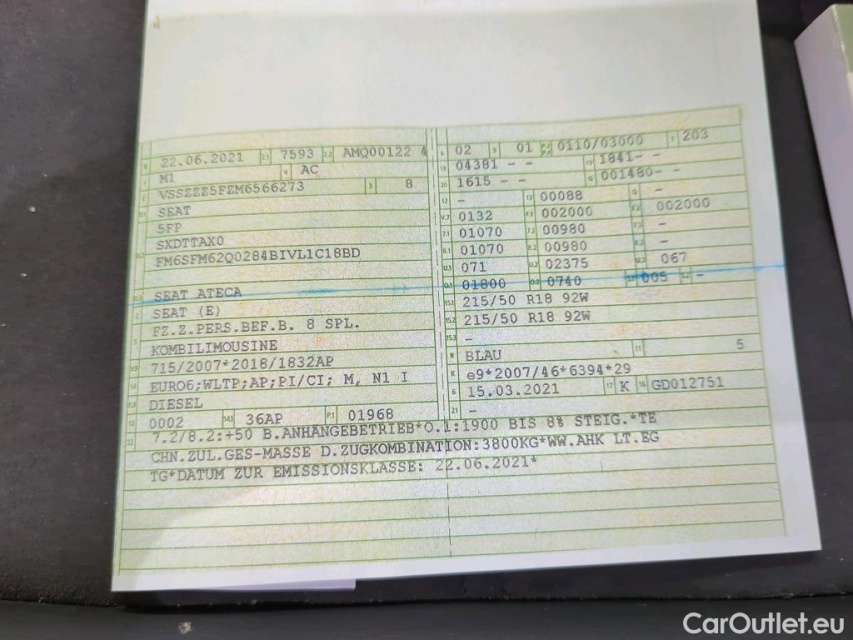 22.06.2021 7593 AMQ00122 4
M1 AC
VSSZZZ5FZM6566273 8
SEAT
5FP
SXDTTAX0
FM6SFM62Q0284BIVL1C18BD
SEAT ATECA
SEAT (E)
FZ.Z.PERS.BEF.B. 8 SPL.
KOMBILIMOUSINE
715/2007*2018/1832AP
EURO6;WLTP;AP;PI/CI; M, N1 I
DIESEL
0002 36AP 01968
02 01 0110/03000 203
04381 - - 1841- -
1615 - - 001480- -
- 00088 -
0132 002000 002000
01070 00980 -
01070 00980 -
071 02375 067
01800 0740 005 -
215/50 R18 92W
215/50 R18 92W
-
BLAU 5
e9*2007/46*6394*29
15.03.2021 K GD012751
-
7.2/8.2:+50 B.ANHÄNGEBETRIEB*O.1:1900 BIS 8% STEIG.*TE
CHN.ZUL.GES-MASSE D.ZUGKOMBINATION:3800KG*WW.AHK LT.EG
TG*DATUM ZUR EMISSIONSKLASSE: 22.06.2021*
CarOutlet.eu